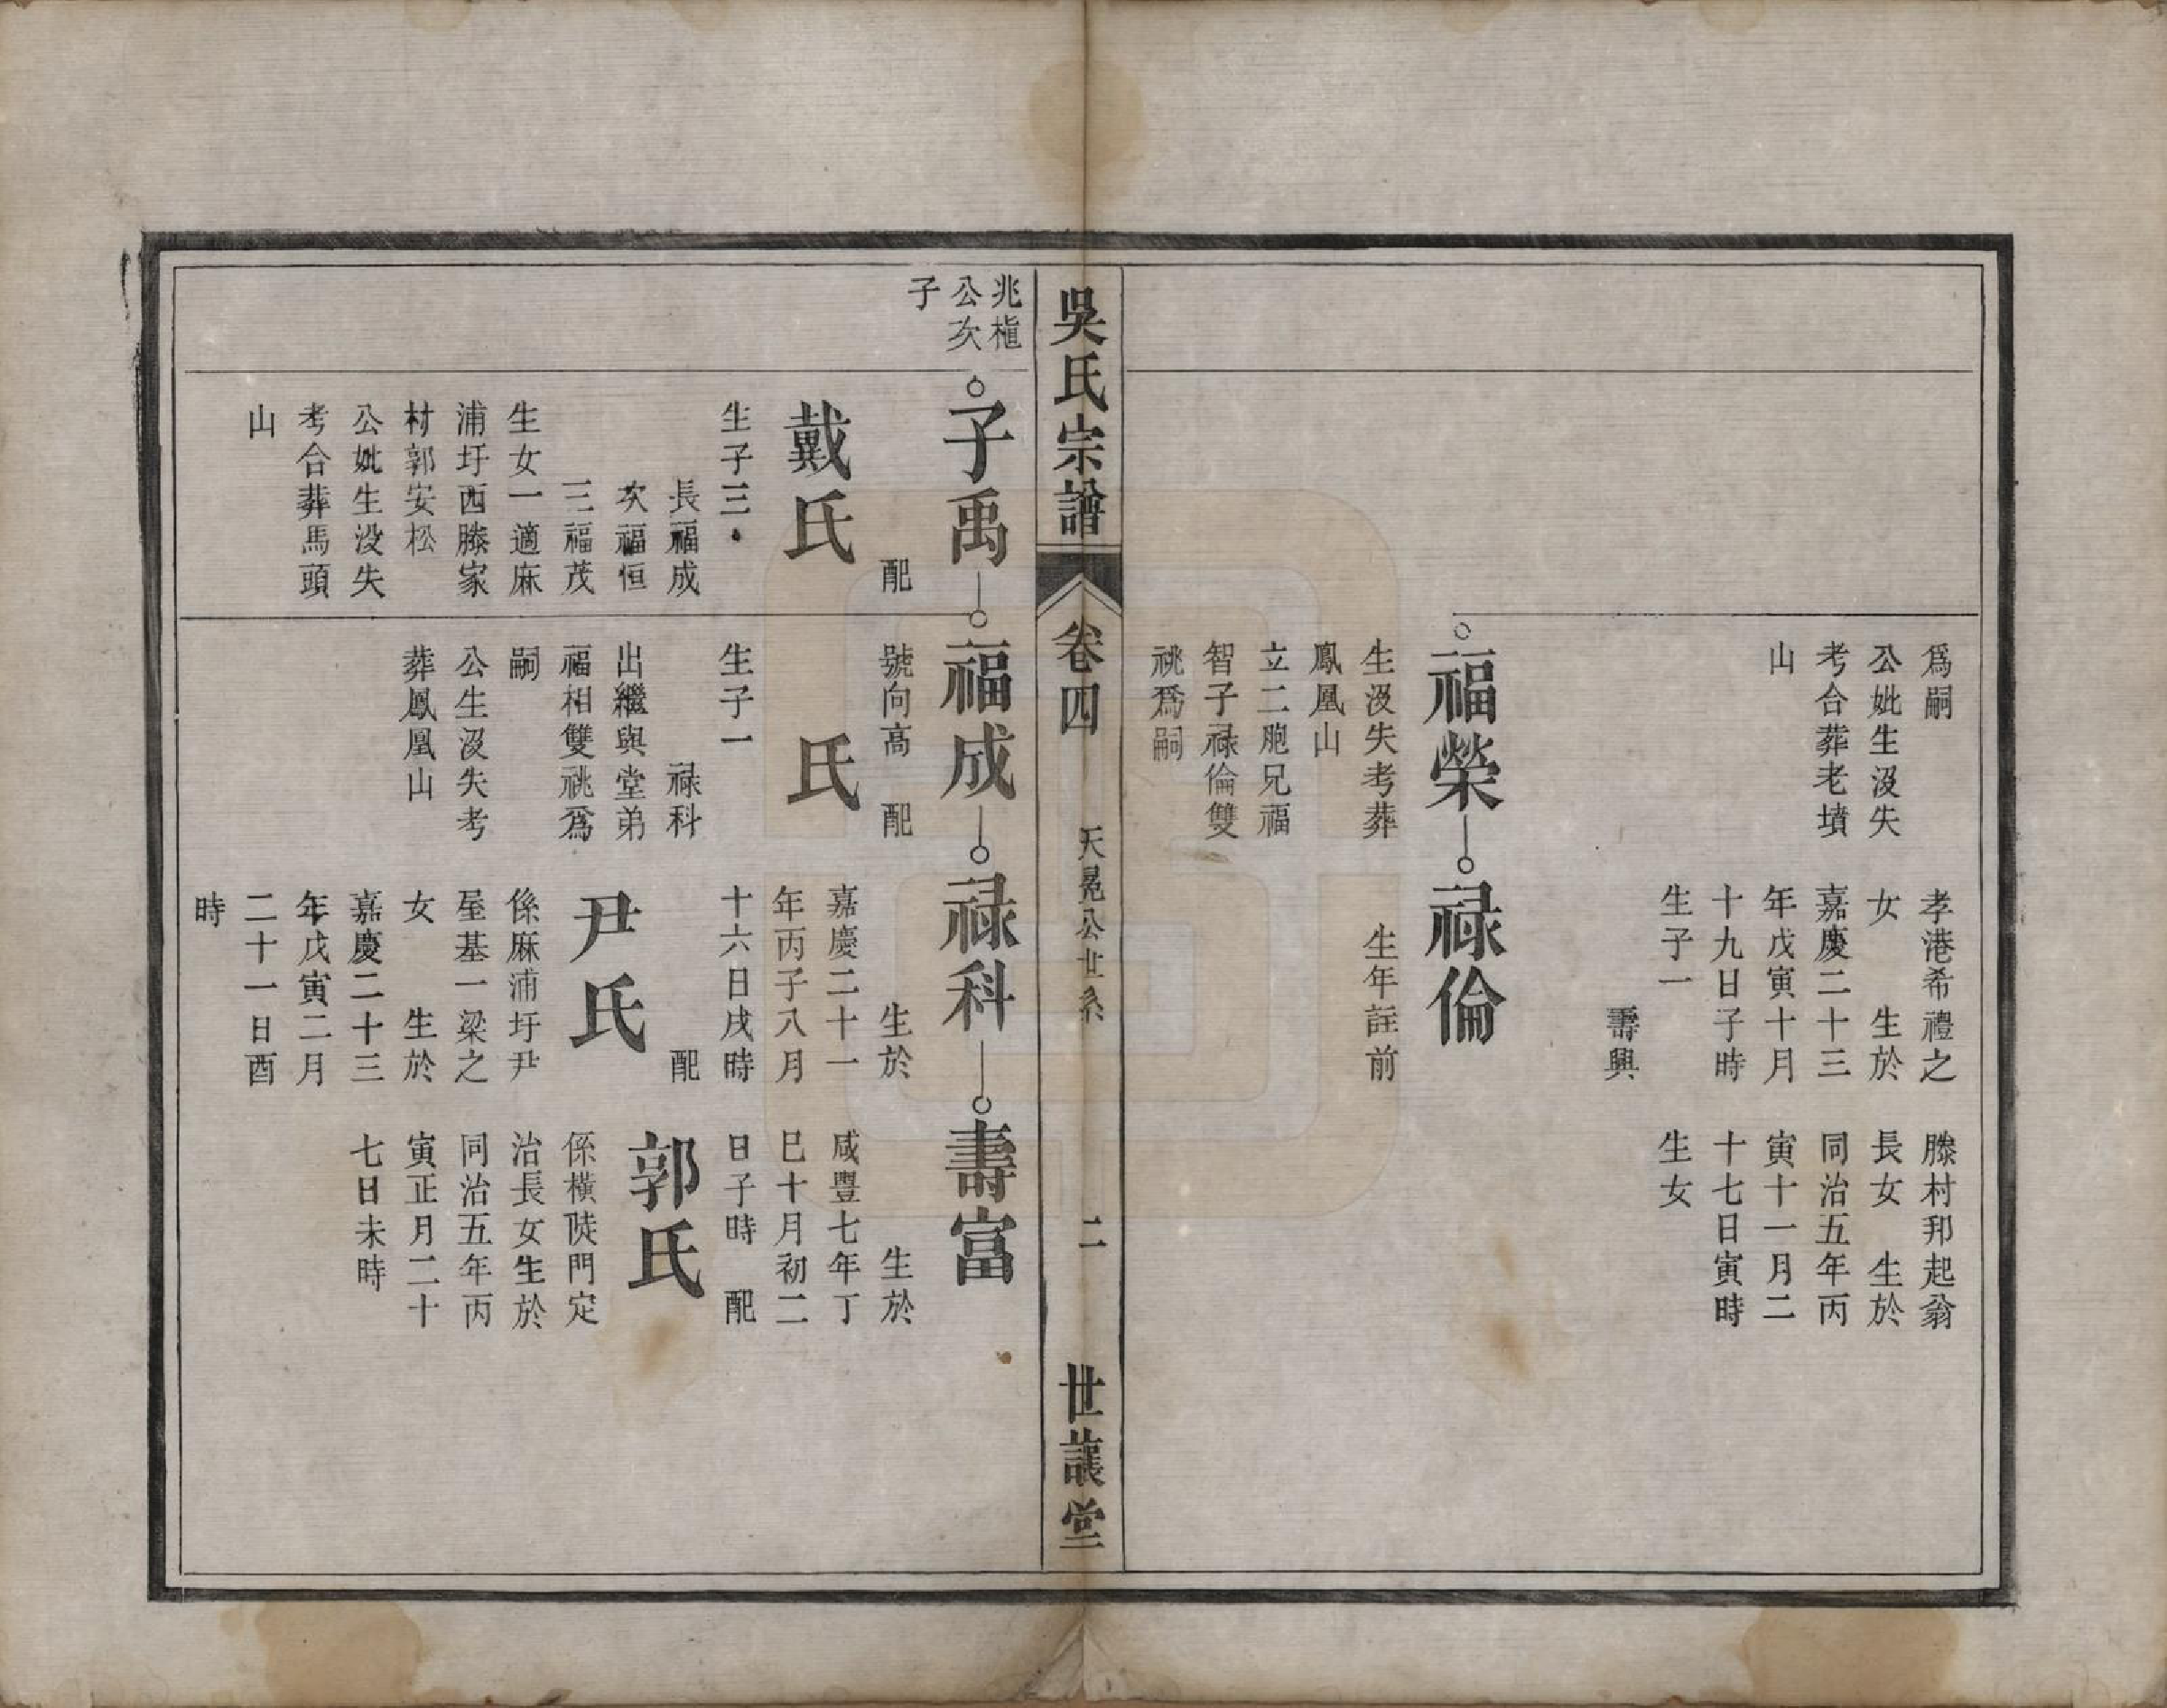 爲嗣
公妣生沒失
考合葬老墳
山
孝港希禮之
女　生於
嘉慶二十三
年戊寅十月
十九日子時
生子一
壽興
滕村邦起翁
長女　生於
同治五年丙
寅十一月二
十七日寅時
生女
福榮
生沒失考葬
鳳凰山
立二胞兄福
智子祿倫雙
祧爲嗣
祿倫
生年註前
吳氏宗譜
卷四
天晃公世系
二
世讓堂
兆槞
公次
子
子禹
配
戴氏
生子三
長福成
次福恒
三福茂
生女一適麻
浦圩西滕家
村郭安松
公妣生沒失
考合葬馬頭
山
福成
號向高　配
氏
生子一
祿科
出繼與堂弟
福相雙祧爲
嗣
公生沒失考
葬鳳凰山
祿科
生於
嘉慶二十一
年丙子八月
十六日戌時
配
尹氏
係麻浦圩尹
屋基一梁之
女　生於
嘉慶二十三
年戊寅二月
二十一日酉
時
壽富
生於
咸豐七年丁
巳十月初二
日子時　配
郭氏
係橫陡門定
治長女生於
同治五年丙
寅正月二十
七日未時